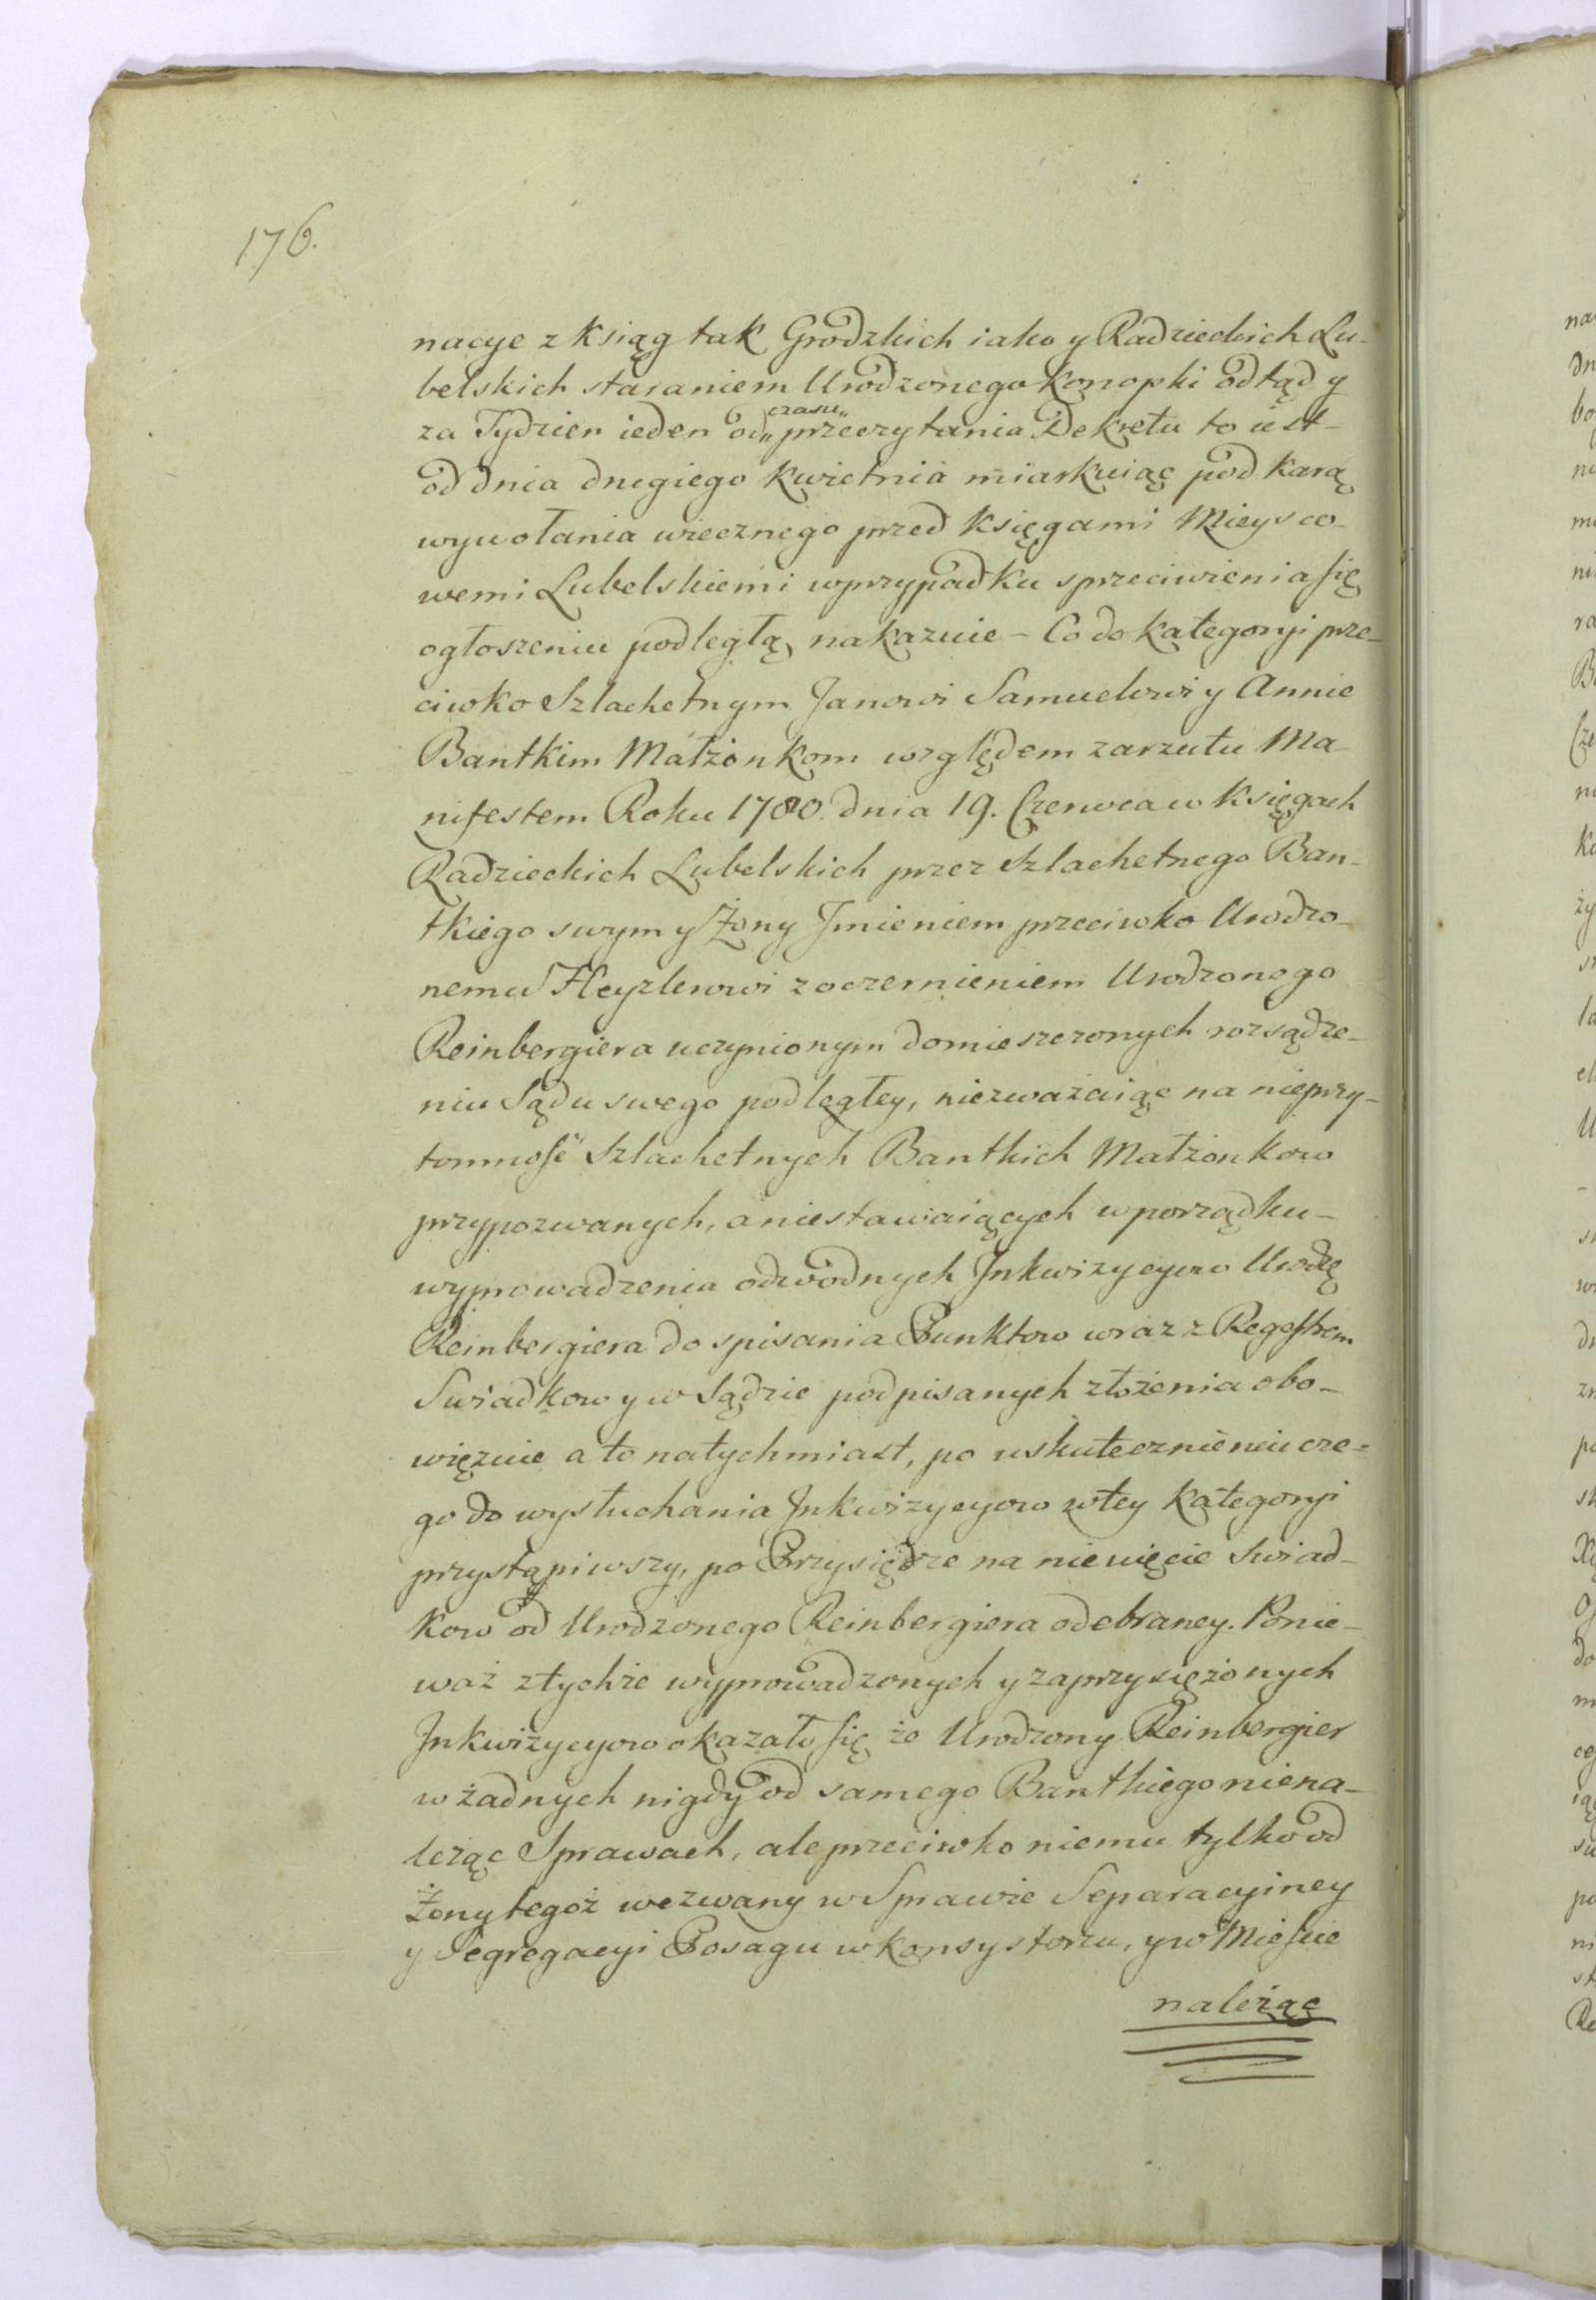 176.
nacye z Ksiąg tak Grodzkich iako y Radzieckich Lu-
belskich staraniem Urodzonego Konopki odtąd y
za Tydzien ieden od„ czasu„ przeczytania Dekretu to iest-
od dnia drugiego Kwietnia miarkuiąc pod karą
wywołania wiecznego przed Księgami Mieysco-
wemi Lubelskiemi wprzypadku sprzeciwienia się
ogłoszeniu podległą nakazuie – Co do kategoryi prze-
ciwko Szlachetnym Janowi Samuelowi y Annie
Bantkim Małżonkom względem zarzutu Ma-
nifestem Roku 1780. dnia 19. Czerwca w Księgach
Radzieckich Lubelskich przez Szlachetnego Ban-
tkiego swym y Żony Jmieniem przeciwko Urodzo-
nemu Heyzlerowi zoczernieniem Urodzonego
Reinbergiera uczynionym domieszczonych rozsądze-
niu Sądu swego podległey, niezważaiąc na nieprzy-
tomność Szlachetnych Bantkich Małżonkow
przypozwanych, a niestawaiących w porządku-
wyprowadzenia odwodnych Jnkwizycyow Urodzę
Reinbergiera do spisania Punktow wraz z Regestrem
Swiadkow y w Sądzie podpisanych złożenia obo-
więzuie a to natychmiast, po uskutecznieniu cze-
go do wysłuchania Jnkwizycyow wtey kategoryi
przystąpiwszy, po Przysiędze na niewięcie Swiad-
kow od Urodzonego Reinbergiera odebraney. Ponie-
waż ztychże wyprowadzonych y zaprzysiężonych
Jnkwizycyow okazało się że Urodzony Reinbergier
w żadnych nigdy od samego Bantkiego niena-
leżąc Sprawach, ale przeciwko niemu tylko od
Żony tegoż wezwany w Sprawie Separacyiney
y Segregacyi Posagu w Konsystorzu, y w Mieście
należąc